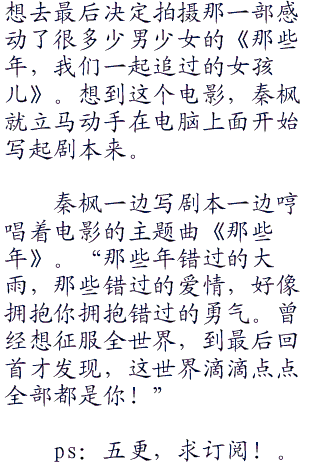 想去最后决定拍摄那一部感
动了很多少男少女的《那些
年，我们一起追过的女孩
儿》。想到这个电影，秦枫
就立马动手在电脑上面开始
写起剧本来。
秦枫一边写剧本一边哼
唱着电影的主题曲《那些
年》。“那些年错过的大
雨，那些错过的爱情，好像
拥抱你拥抱错过的勇气。曾
经想征服全世界，到最后回
首才发现，这世界滴滴点点
全部都是你！”
ps：五更，求订阅！。